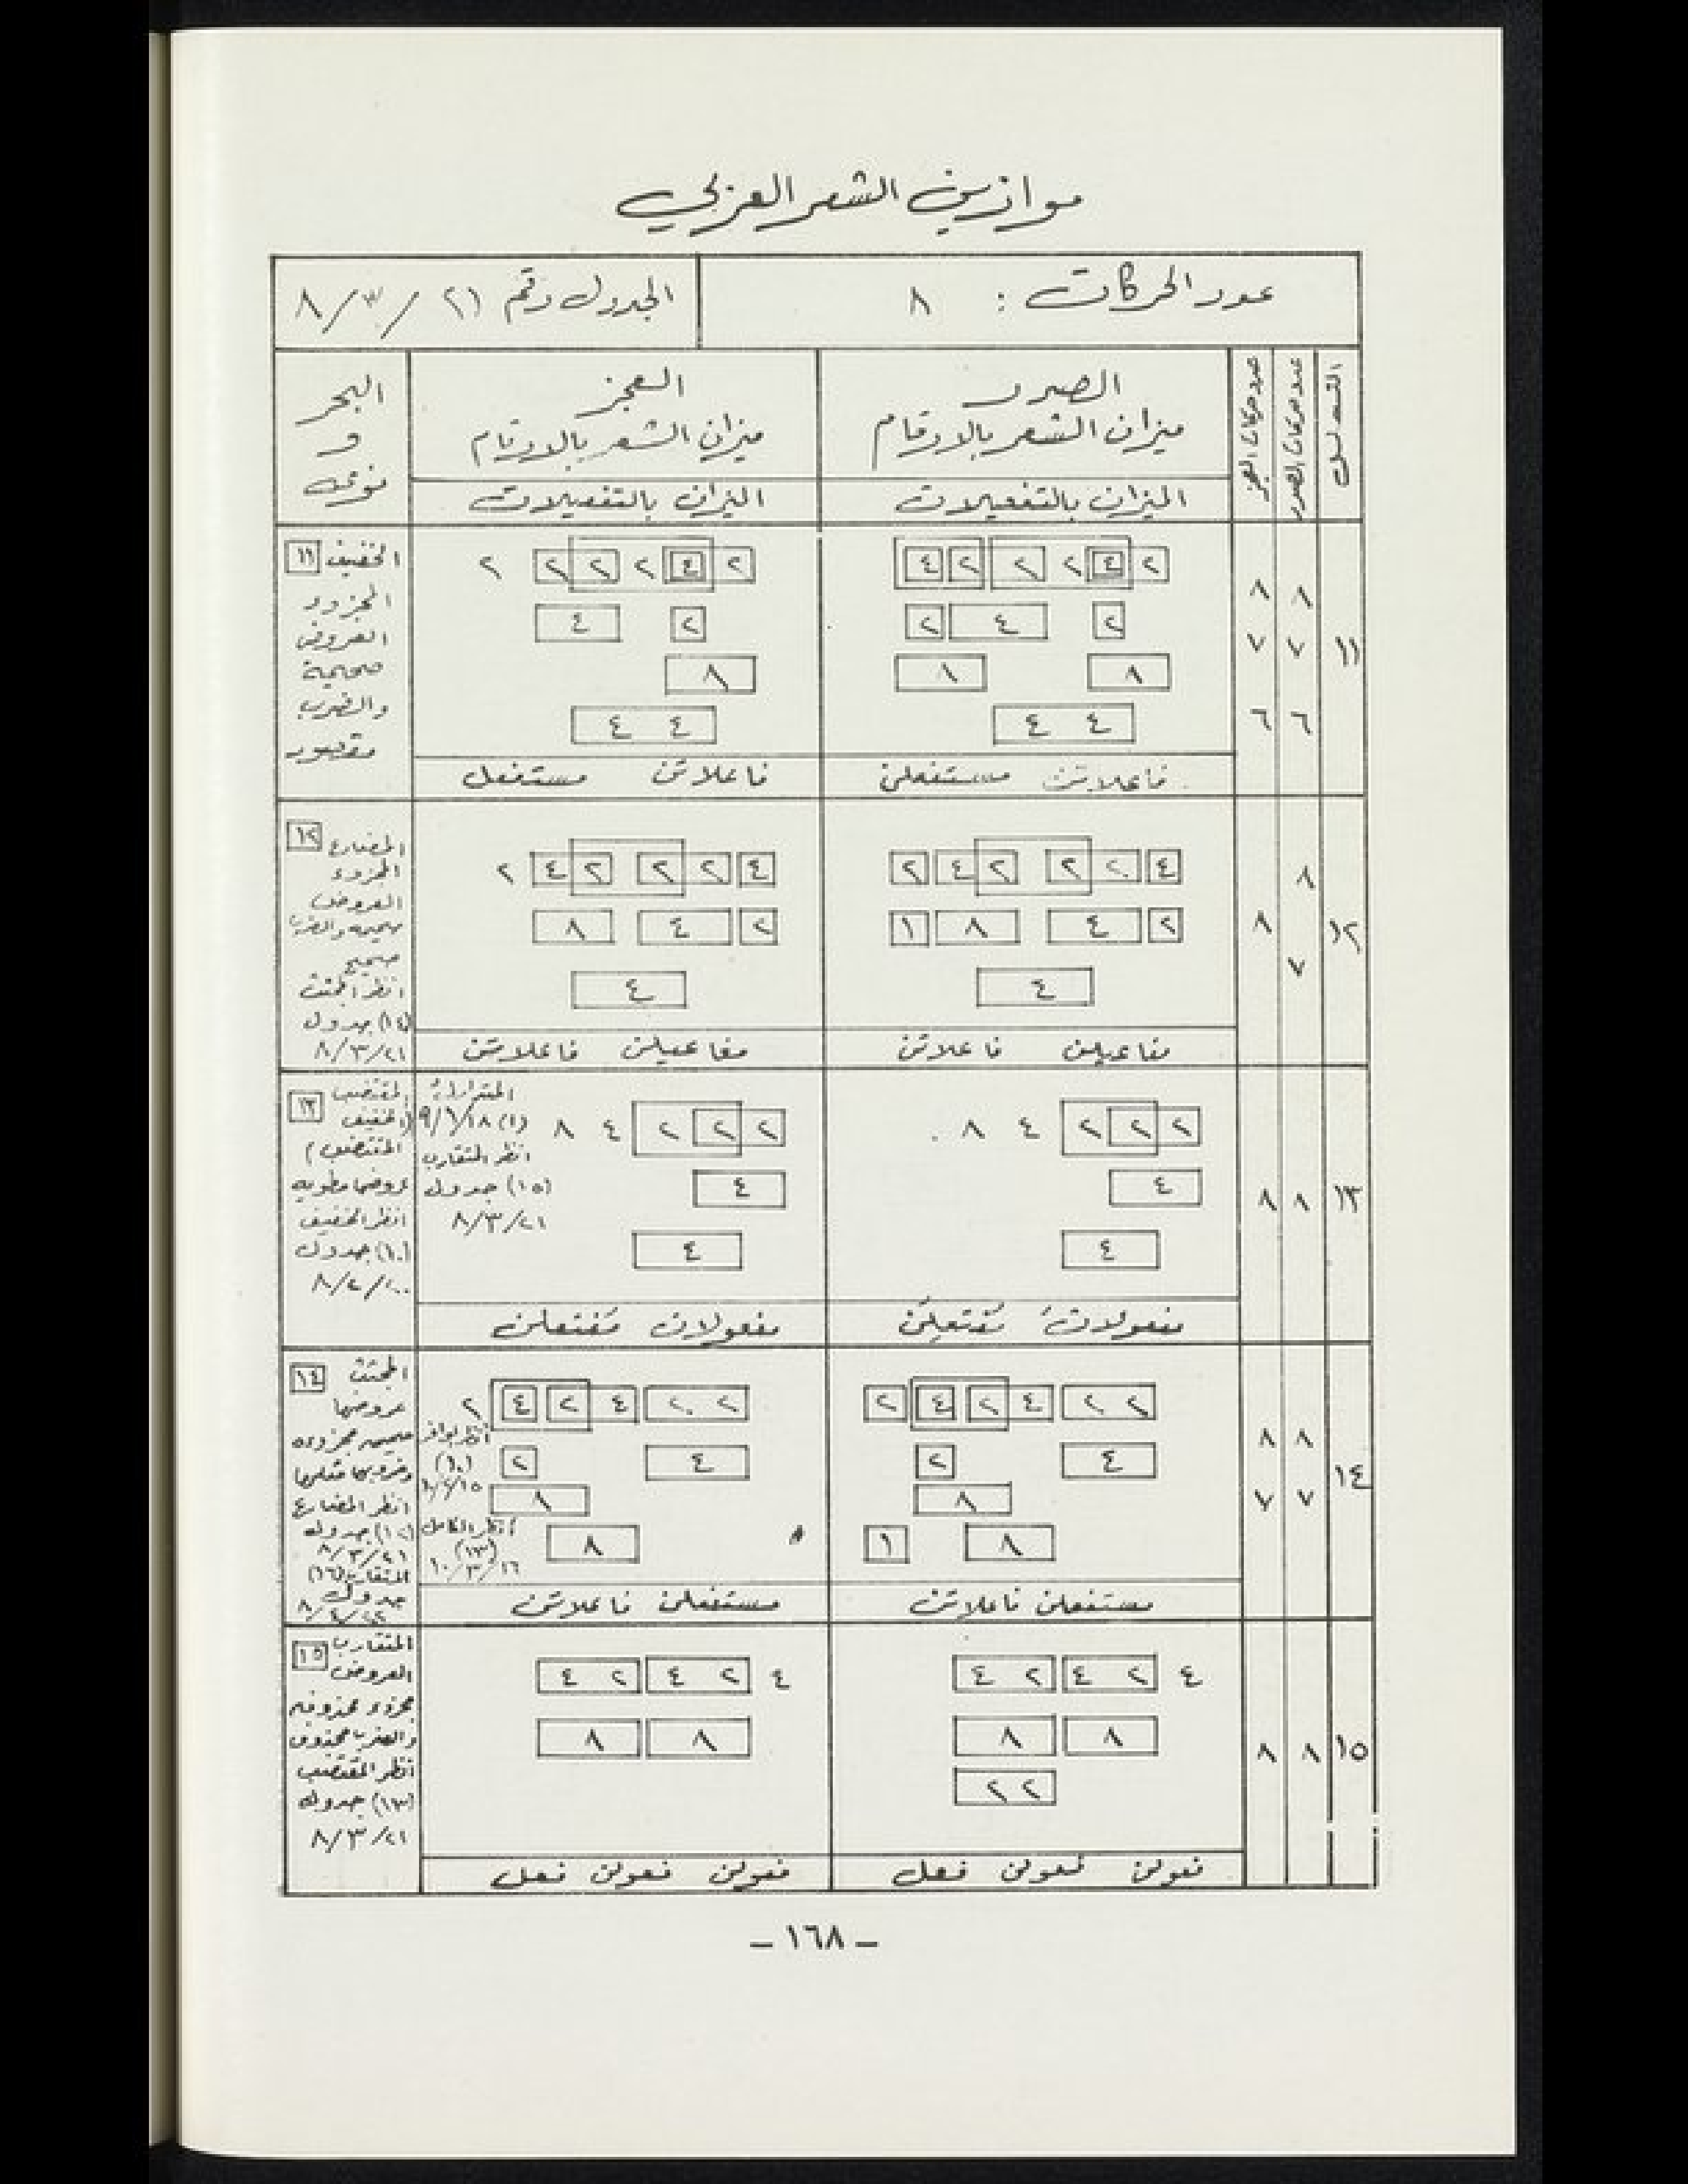 موازين الشعر العربي
عدد الحركات : ٨
الجدول رقم ٢١ / ٣ / ٨
التسلسل
عدد حركات الصدر
عدد حركات العجز
الصدر
ميزان الشعر بالارقام
الميزان بالتفعيلات
العجز
ميزان الشعر بالارقام
الميزان بالتفعيلات
البحر
و
نوعه
١١
٨ ٨
٧ ٧
٦ ٦
٢ ٤ ٢ ٢ ٢ ٤
٢ ٤ ٢
٨ ٨
٤ ٤
فاعلاتن مستفعلن
٢ ٤ ٢ ٢ ٢ ٢
٢ ٤
٨
٤ ٤
فاعلاتن مستفعل
١١ الخفيف
المجزوء
العروض
صحيحة
والضرب
مقصور
١٢
٨
٨
٧
٤ ٢ ٢ ٢ ٤ ٢
٢ ٤ ٨ ١
٤
مفاعيلن فاعلاتن
٤ ٢ ٢ ٢ ٤ ٢
٢ ٤ ٨
٤
مفاعيلن فاعلاتن
١٢ المضارع
المجزوء
العروض
صحيحه والضرب
صحيح
انظر المجتث
(١٤) جدول
٨/٣/٢١
١٣
٨ ٨
٢ ٢ ٢ ٤ ٨
٤
٤
مفعولاتُ مُفتعِلن
٢ ٢ ٢ ٤ ٨
٤
٤
مفعولات مُفتعلن
(١) ٩/١/١٨
انظر المتقارب
(١٥) جدول
٨/٣/٢١
١٣ المقتضب
(الخفيف
المقتضب)
عروضها مطويه
انظر الخفيف
(١٠) جدول
٨/٢/٢٠
١٤
٨ ٨
٧ ٧
٢ ٢ ٤ ٢ ٤ ٢
٤ ٢
٨
٨ ١
مستفعلن فاعلاتن
٢ ٢ ٤ ٢ ٤ ٢
٤ ٢
٨
٨
مستفعلن فاعلاتن
انظر الوافر
(١٠)
انظر الكامل
(١٣)
١٠/٣/١٦
١٤ المجتث
عروضها
صحيحه مجزوءه
وضربها مثلها
انظر المضارع
(١٢) جدول
٨/٣/٢١
المتقارب (١٦)
جدول
١٥
٨ ٨
٤ ٢ ٤ ٢ ٤
٨ ٨
٢ ٢
فعولن فعولن فعل
٤ ٢ ٤ ٢ ٤
٨ ٨
فعولن فعولن فعل
١٥ المتقارب
العروض
مجزوء محذوفه
والضرب محذوف
انظر المقتضب
(١٣) جدول
٨/٣/٢١
– ١٦٨ –